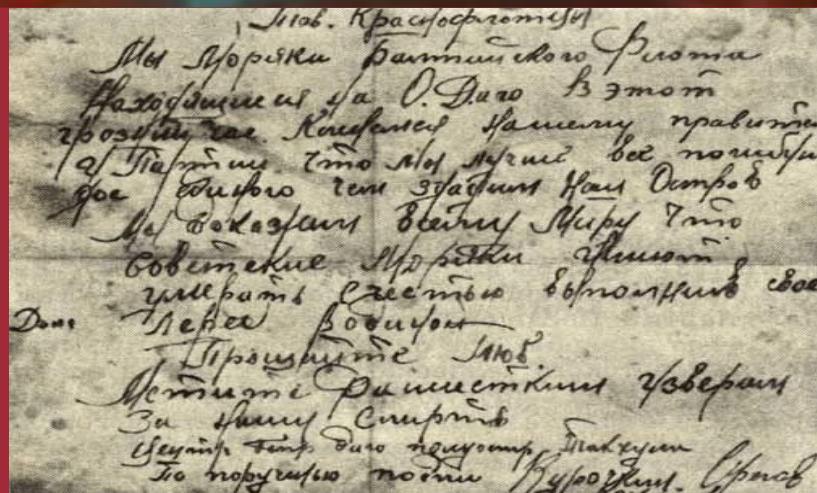 Тов. Краснофлотцы
Мы Моряки Балтийского Флота
Находящиеся на О. Даго В этот
грозный час Клянемся Нашему правите
и Партии Что мы лучше все погибнем
до единого чем здадим Наш Остров
Мы Докажим Всему Миру Что
Советские Моряки Умеют
умерать С честью выполнив свое
Долг Перед Родиной
Прощайте Тов.
Мстите Фашистким Узверам
За Нашу Смерть
Даго полуостр. Тахкуна
По поручению подпи Курочкин.